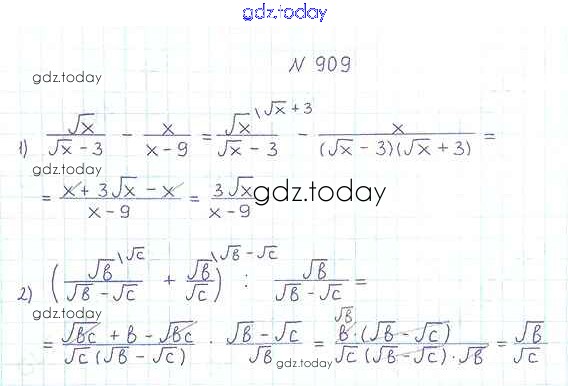 gdz.today
N 909
gdz.today
1) √x/(√x - 3) - x/(x - 9) = √x\√x + 3/(√x - 3) - x/((√x - 3)(√x + 3)) =
gdz.today
= (x + 3√x - x)/(x - 9) = 3√x/(x - 9)
gdz.today
2) (√b\√c/(√b - √c) + √b\√b - √c/√c) : √b/(√b - √c) =
gdz.today
= (√bc + b - √bc)/(√c(√b - √c)) · (√b - √c)/√b = √b b · (√b - √c)/(√c(√b - √c) · √b) = √b/√c
gdz.today